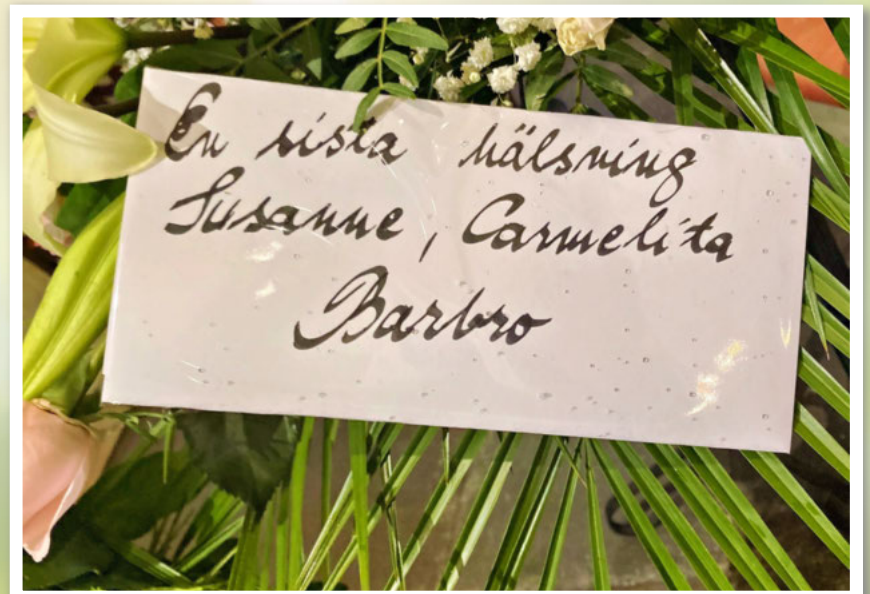 En sista hälsning
Susanne, Carmelita
Barbro